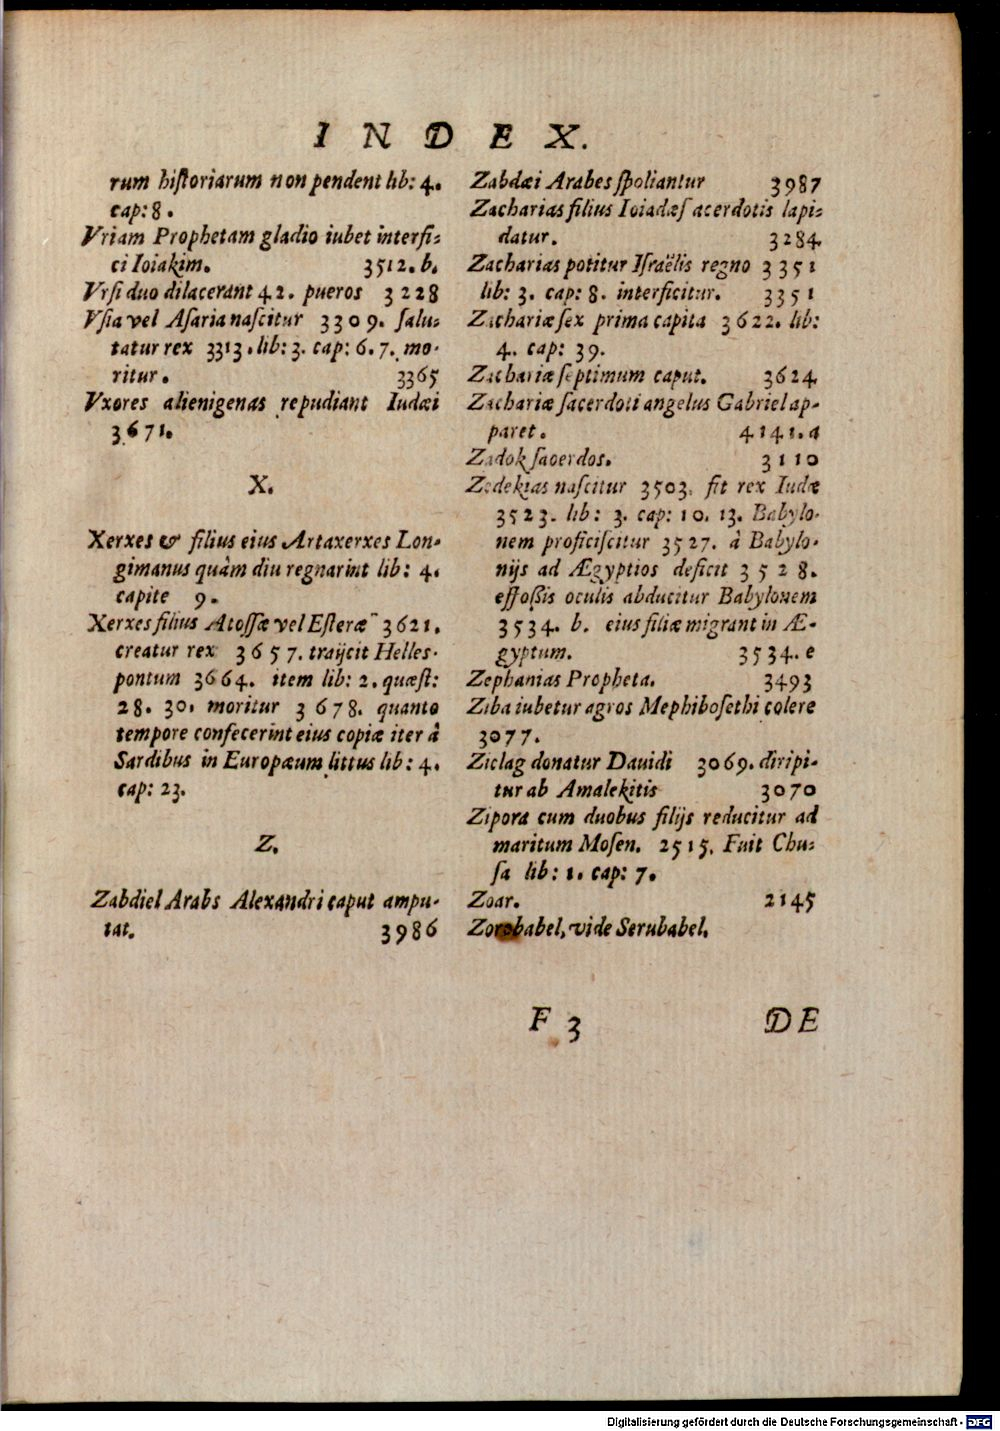 INDEX.
rum hiſtoriarum non pendent lib: 4.
cap: 8.
Vriam Prophetam gladio iubet interfi-
ci Ioiakim. 3512. b.
Vrſi duo dilacerant 42. pueros 3228
Vſia vel Aſaria naſcitur 3309. ſalu-
tatur rex 3313. lib: 3. cap: 6. 7. mo-
ritur. 3365
Vxores alienigenas repudiant Iudæi
3671.
X.
Xerxes & filius eius Artaxerxes Lon-
gimanus quàm diu regnarint lib: 4.
capite 9.
Xerxes filius Atoſſæ vel Eſteræ 3621.
creatur rex 3657. traijcit Helles-
pontum 3664. item lib: 2. quæſt:
28. 30. moritur 3678. quanto
tempore confecerint eius copiæ iter à
Sardibus in Europæum littus lib: 4.
cap: 23.
Z.
Zabdiel Arabs Alexandri caput ampu-
tat. 3986
Zabdæi Arabes ſpoliantur 3987
Zacharias filius Ioiadæ ſacerdotis lapi-
datur. 3284
Zacharias potitur Iſraëlis regno 3351
lib: 3. cap: 8. interficitur. 3351
Zachariæ ſex prima capita 3622. lib:
4. cap: 39.
Zachariæ ſeptimum caput. 3624
Zachariæ ſacerdoti angelus Gabriel ap-
paret. 4141. a
Zadok ſacerdos. 3110
Zedekias naſcitur 3503. fit rex Iudæ
3523. lib: 3. cap: 10. 13. Babylo-
nem proficiſcitur 3527. à Babylo-
nijs ad Ægyptios deficit 3528.
effoßis oculis abducitur Babylonem
3534. b. eius filiæ migrant in Æ-
gyptum. 3534. e
Zephanias Propheta. 3493
Ziba iubetur agros Mephiboſethi colere
3077.
Ziclag donatur Dauidi 3069. diripi-
tur ab Amalekitis 3070
Zipora cum duobus filijs reducitur ad
maritum Moſen. 2515. Fuit Chu-
ſa lib: 1. cap: 7.
Zoar. 2145
Zorobabel, vide Serubabel.
F 3 DE
Digitalisierung gefördert durch die Deutsche Forschungsgemeinschaft - DFG